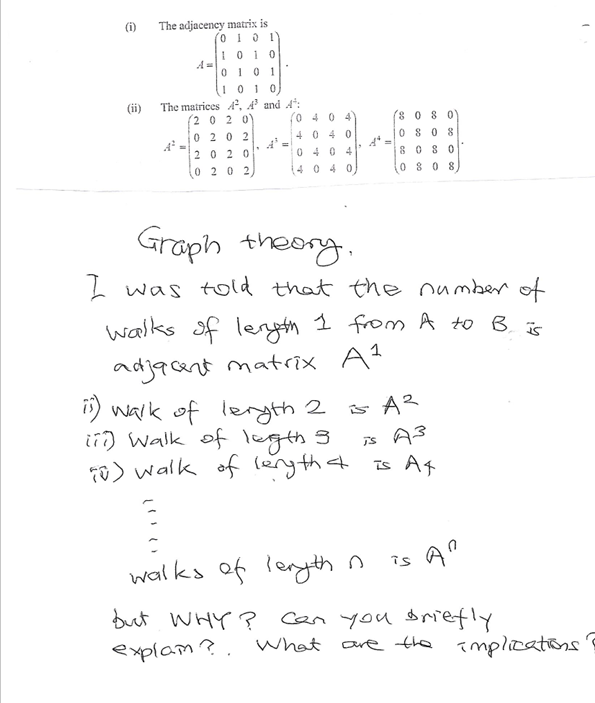 (i) The adjacency matrix is
A = (0 1 0 1
1 0 1 0
0 1 0 1
1 0 1 0).
(ii) The matrices A², A³ and A⁴:
A² = (2 0 2 0
0 2 0 2
2 0 2 0
0 2 0 2), A³ = (0 4 0 4
4 0 4 0
0 4 0 4
4 0 4 0), A⁴ = (8 0 8 0
0 8 0 8
8 0 8 0
0 8 0 8).
Graph theory.
I was told that the number of
walks of length 1 from A to B is
adjacent matrix A¹
ii) walk of length 2 is A²
iii) Walk of legth 3 is A³
iv) walk of length 4 is A4
walks of length n is Aⁿ
but WHY? Can you briefly
explain?. What are the implications?